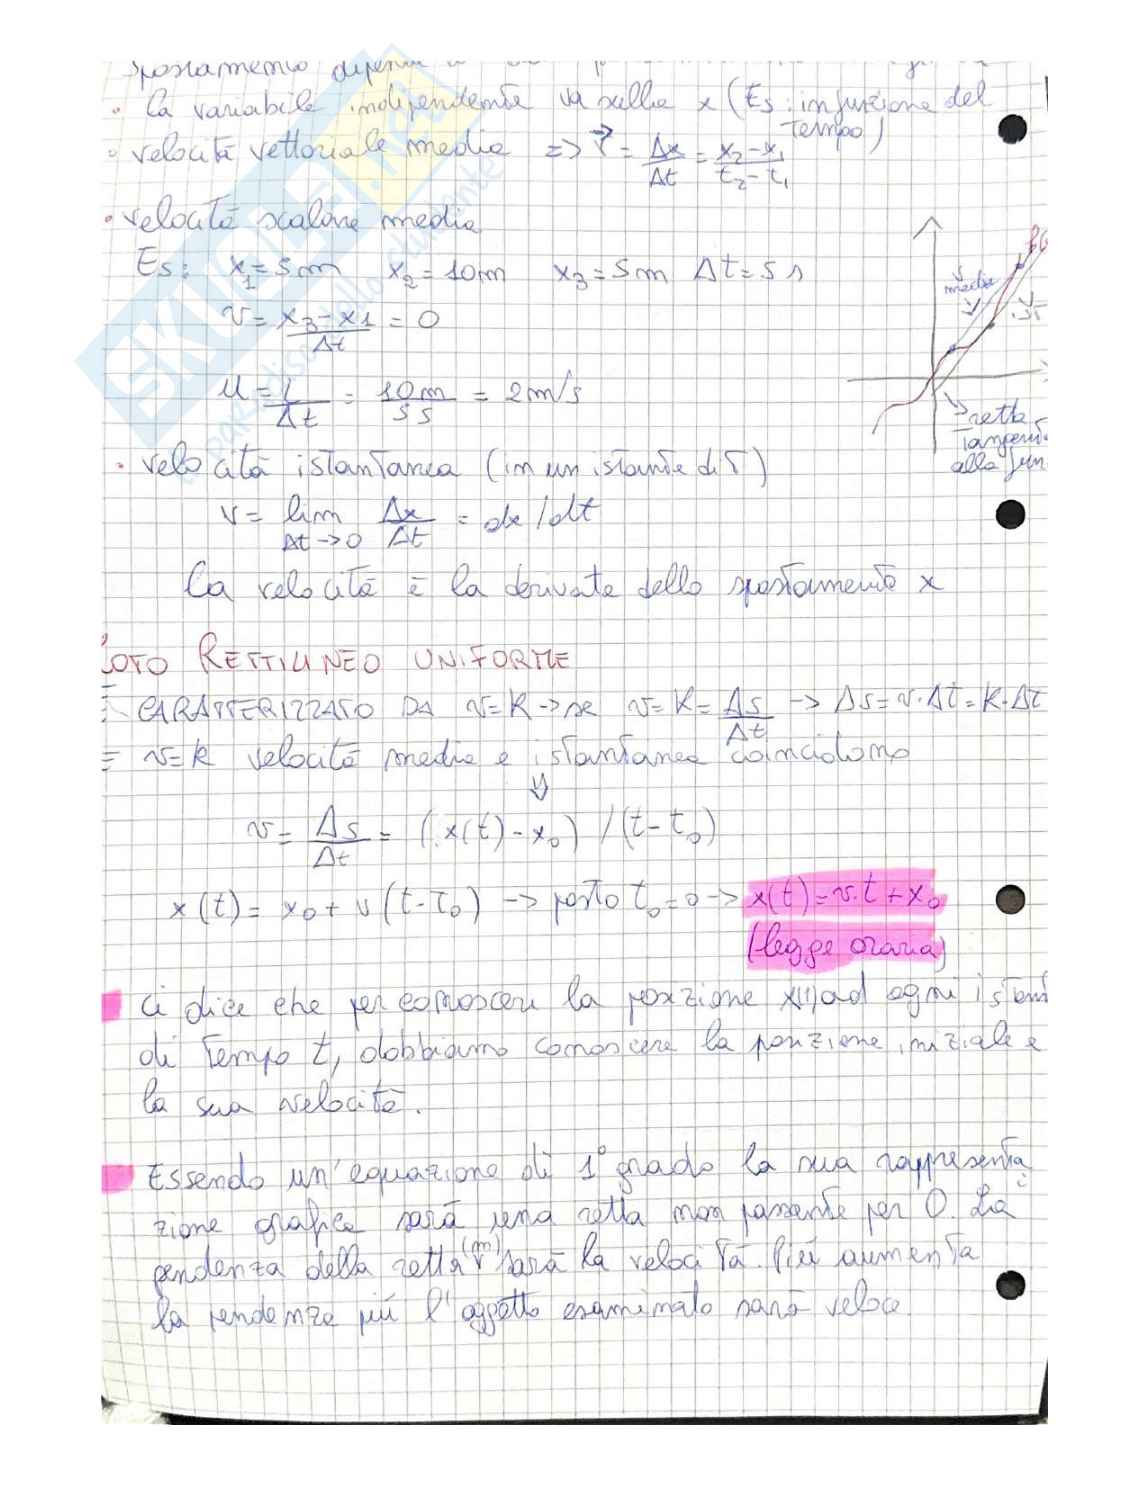 spostamento
• la variabile indipendente va sulla x (Es: in funzione del
tempo)
• velocità vettoriale media => v = Δx/Δt = x₂-x₁/t₂-t₁
• velocità scalare media
Es: x₁=5m x₂=10m x₃=5m Δt=5s
v = x₃-x1/Δt = 0
u = L/Δt = 10m/5s = 2m/s
media
retta
tangente
alla fun
• velocità istantanea (in un istante di T)
v = lim Δt->0 Δx/Δt = dx/dt
la velocità è la derivata dello spostamento x
OTO RETTILINEO UNIFORME
CARATTERIZZATO DA v=K -> se v=K=Δs/Δt -> Δs=v·Δt=K·Δt
= v=k velocità media e istantanea coincidono
v = Δs/Δt = (x(t)-x₀)/(t-t₀)
x(t)= x₀+v(t-t₀) -> posto t₀=0 -> x(t)=v·t+x₀
(legge oraria)
Ci dice che per conoscere la posizione x(t) ad ogni istant
di tempo t, dobbiamo conoscere la posizione iniziale e
la sua velocità.
Essendo un'equazione di 1° grado la sua rappresenta
zione grafica sarà una retta non passante per 0. La
pendenza della retta (m) sarà la velocità. Più aumenta
la pendenza più l'oggetto esaminato sarà veloce
SKUOLA.net